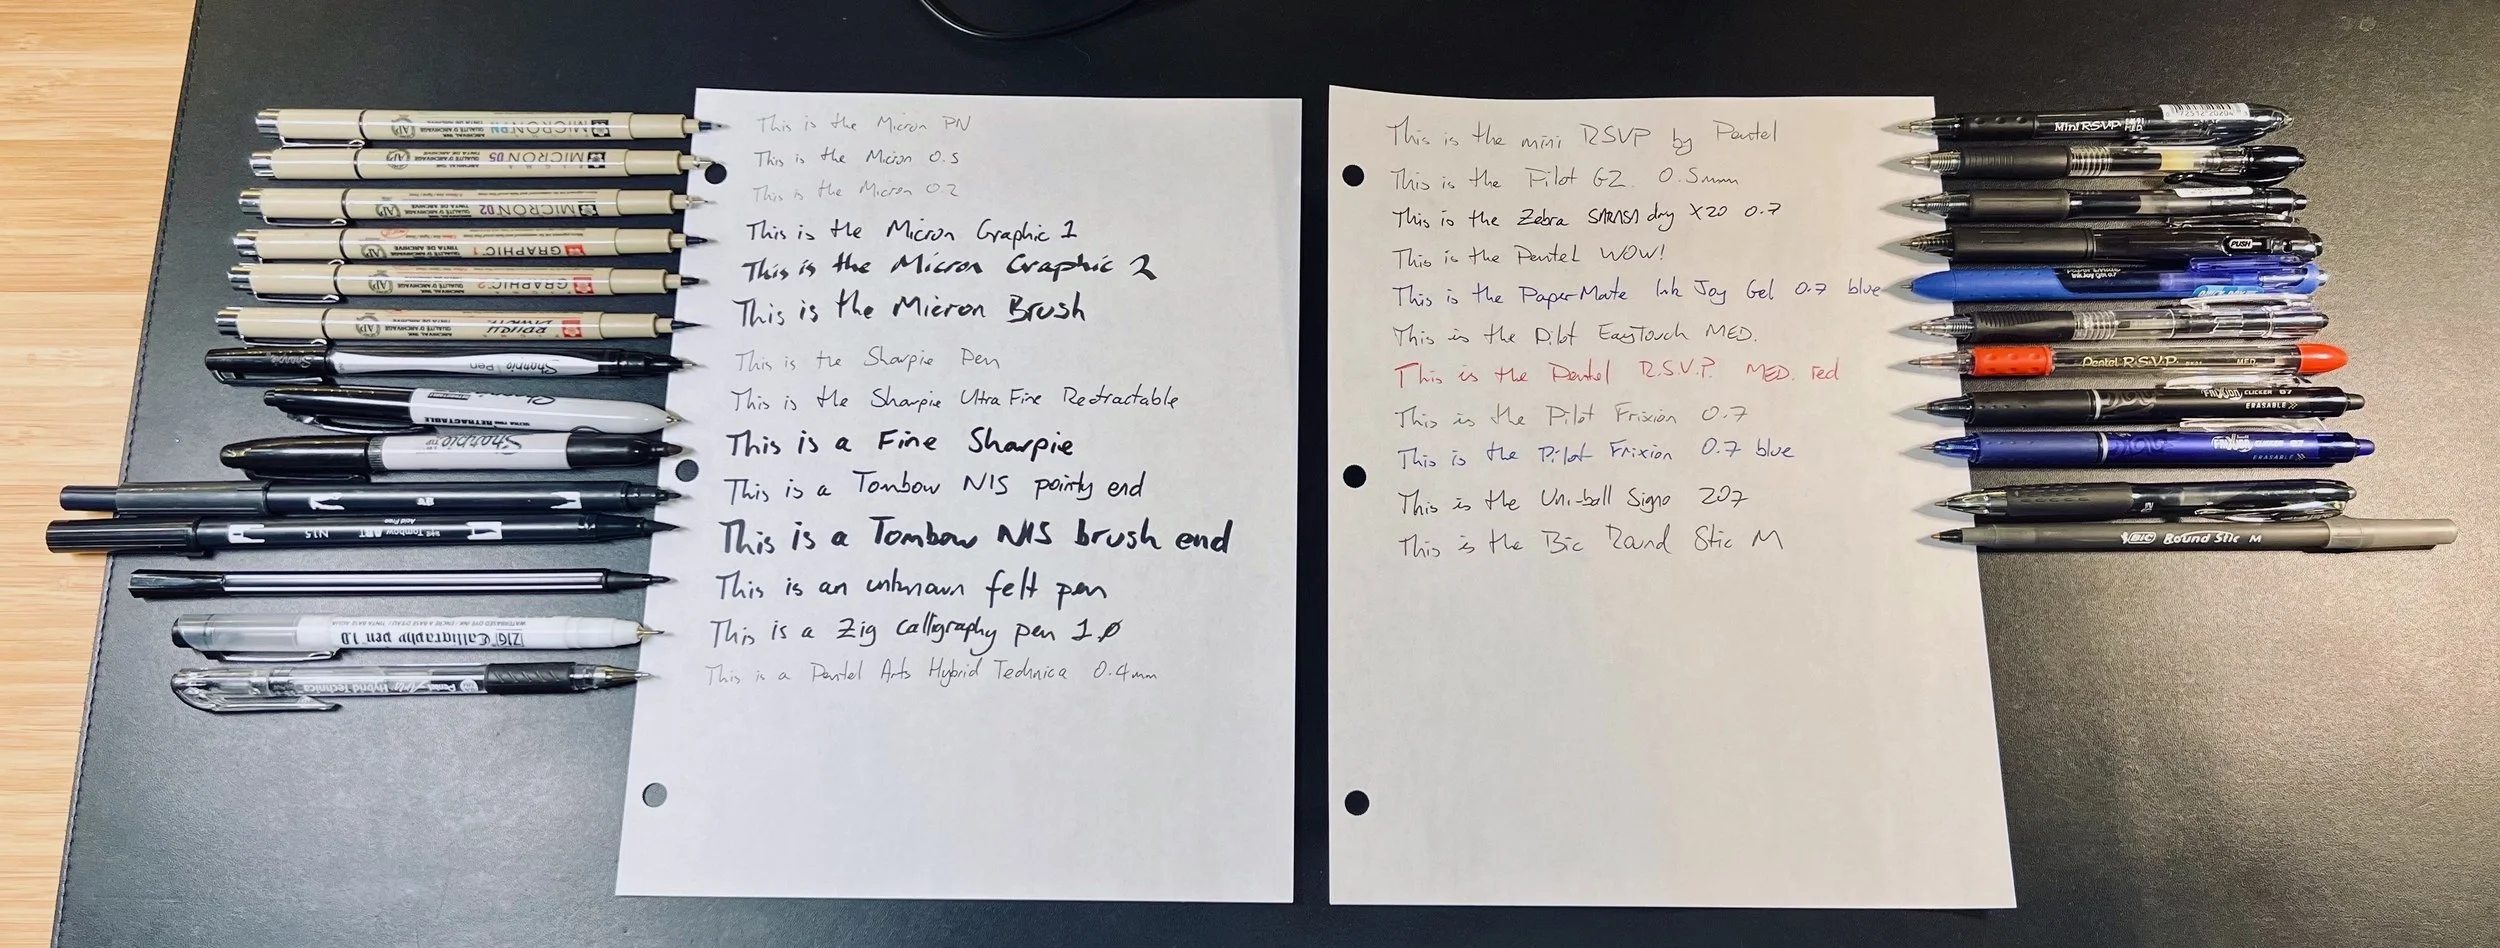 This is the Micron PN
This is the Micron 0.5
This is the Micron 0.2
This is the Micron Graphic 1
This is the Micron Graphic 2
This is the Micron Brush
This is the Sharpie Pen
This is the Sharpie Ultra Fine Retractable
This is a Fine Sharpie
This is a Tombow N15 pointy end
This is a Tombow N15 brush end
This is an unknown felt pen
This is a Zig Calligraphy pen 1.0
This is a Pentel Arts Hybrid Technica 0.4mm
This is the mini RSVP by Pentel
This is the Pilot G2 0.5mm
This is the Zebra SARASA dry X20 0.7
This is the Pentel WOW!
This is the PaperMate Ink Joy Gel 0.7 blue
This is the Pilot EasyTouch MED.
This is the Pentel R.S.V.P. MED. red
This is the Pilot Frixion 0.7
This is the Pilot Frixion 0.7 blue
This is the Uni-ball Signo 207
This is the Bic Round Stic M
MICRON PN
MICRON 05
MICRON 02
GRAPHIC 1
GRAPHIC 2
BRUSH
Sharpie Pen
Sharpie
Sharpie
N15 Tombow
ZIG Calligraphy pen 1.0
Pentel Arts Hybrid Technica
Mini R.S.V.P. MED.
PUSH
Paper Mate InkJoy Gel 0.7
Pentel R.S.V.P. MED.
FRIXION CLICKER 07
ERASABLE
FRIXION CLICKER 07
ERASABLE
BIC Round Stic M